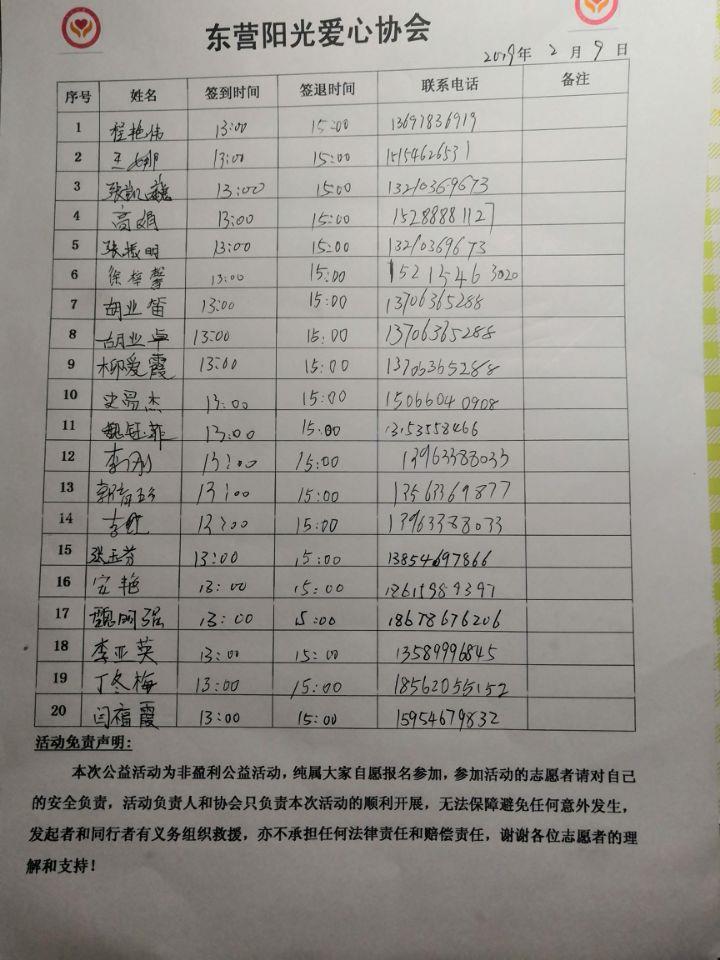 东营阳光爱心协会
2019年 2 月 9 日
序号 姓名 签到时间 签退时间 联系电话 备注
1 程艳伟 13:00 15:00 13697836919
2 王娜 13:00 15:00 15154626531
3 张凯巍 13:00 15:00 13210369673
4 高娟 13:00 15:00 15288881127
5 张振明 13:00 15:00 13210369673
6 徐梓馨 13:00 15:00 15215463020
7 胡业笛 13:00 15:00 13706365288
8 胡业卓 13:00 15:00 13706365288
9 柳爱霞 13:00 15:00 13706365288
10 史尋杰 13:00 15:00 15066040908
11 魏钰菲 13:00 15:00 13153558466
12 李刚 13:00 15:00 13963388033
13 13:00 15:00 13563369877
14 李红 13:00 15:00 13963388033
15 张玉芬 13:00 15:00 13854697866
16 艳 13:00 15:00 18615989397
17 魏明强 13:00 15:00 18678676206
18 李亚英 13:00 15:00 13589996845
19 丁冬梅 13:00 15:00 18562055152
20 闫福霞 13:00 15:00 15954679832
活动免责声明:
本次公益活动为非盈利公益活动，纯属大家自愿报名参加，参加活动的志愿者请对自己
的安全负责，活动负责人和协会只负责本次活动的顺利开展，无法保障避免任何意外发生，
发起者和同行者有义务组织救援，亦不承担任何法律责任和赔偿责任，谢谢各位志愿者的理
解和支持！